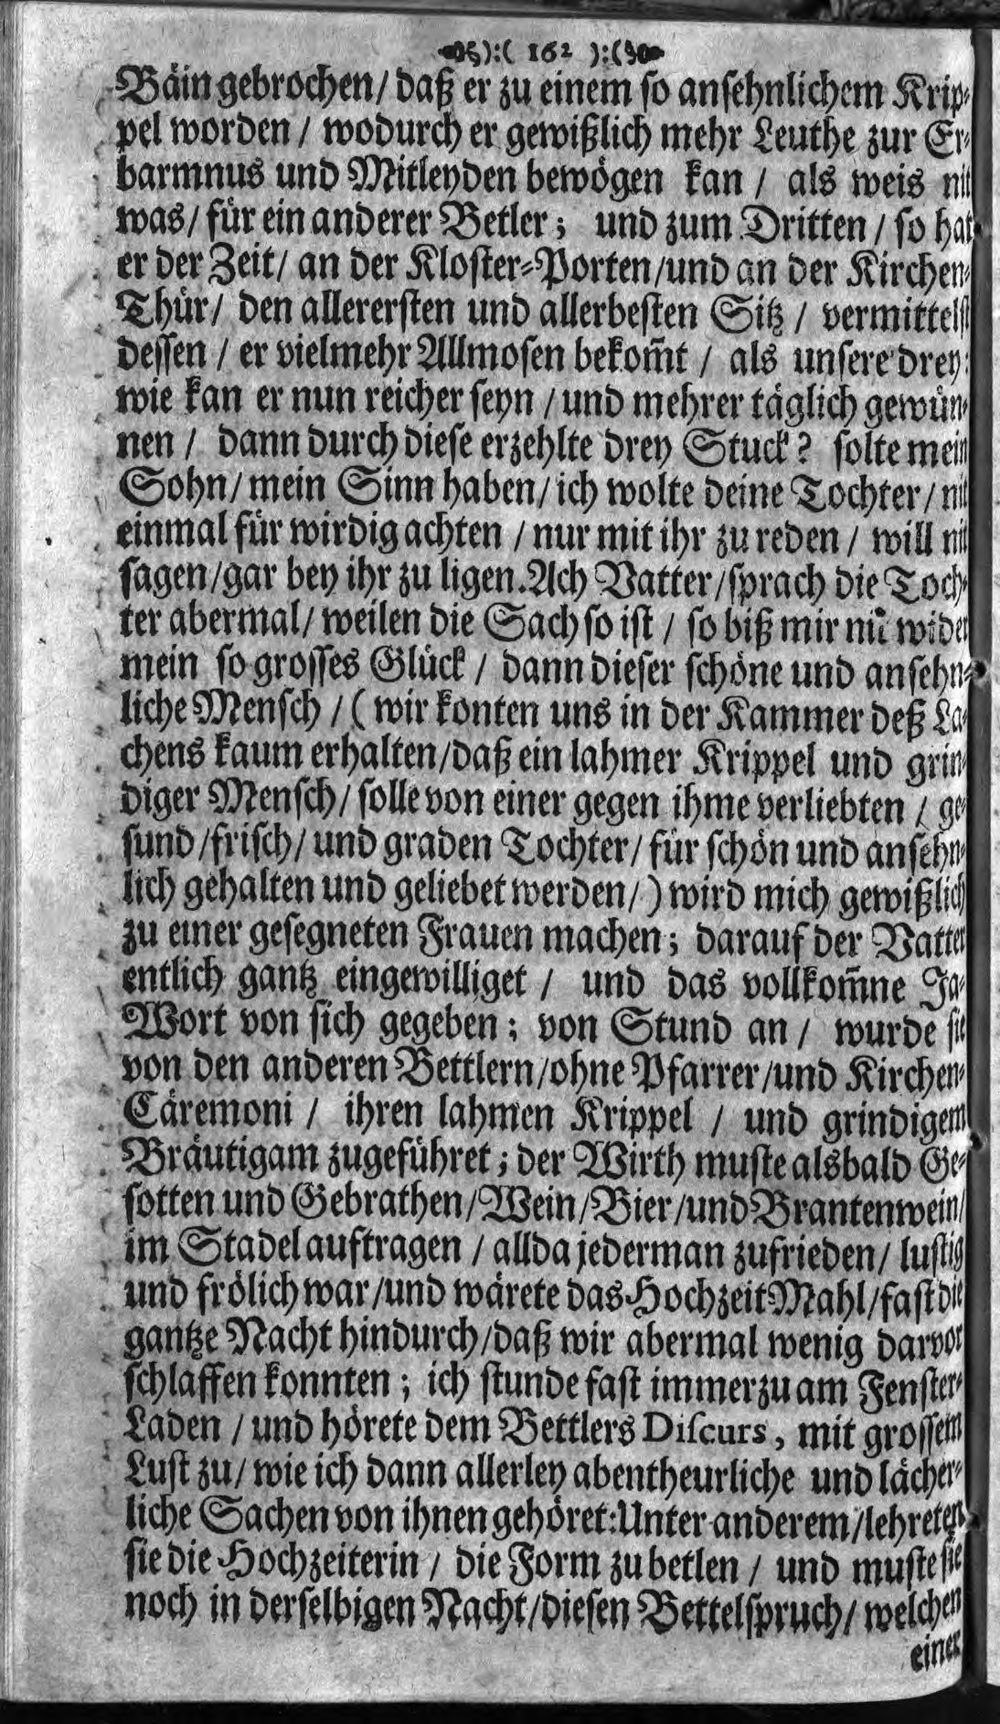 ):( 162 ):(
Bäin gebrochen/ daß er zu einem so ansehnlichem Krip-
pel worden / wodurch er gewißlich mehr Leuthe zur Er-
barmnus und Mitleyden bewögen kan / als weis nit
was/ für ein anderer Betler; und zum Dritten / so hat
er der Zeit/ an der Kloster-Porten/und an der Kirchen-
Thür/ den allerersten und allerbesten Sitz / vermittelst
dessen / er vielmehr Allmosen bekom̃t / als unsere drey:
wie kan er nun reicher seyn / und mehrer täglich gewün-
nen / dann durch diese erzehlte drey Stuck? solte mein
Sohn/ mein Sinn haben/ ich wolte deine Tochter/ nit
einmal für wirdig achten / nur mit ihr zu reden / will nit
sagen/gar bey ihr zu ligen. Ach Vatter/sprach die Toch-
ter abermal/ weilen die Sach so ist / so biß mir nit wider
mein so grosses Glück / dann dieser schöne und ansehn-
liche Mensch / ( wir konten uns in der Kammer deß La-
chens kaum erhalten/daß ein lahmer Krippel und grin-
diger Mensch/ solle von einer gegen ihme verliebten / ge-
sund /frisch/ und graden Tochter/ für schön und ansehn-
lich gehalten und geliebet werden/) wird mich gewißlich
zu einer gesegneten Frauen machen; darauf der Vatter
entlich gantz eingewilliget / und das vollkom̃ne Ja-
Wort von sich gegeben; von Stund an / wurde sie
von den anderen Bettlern/ohne Pfarrer/und Kirchen-
Cäremoni / ihren lahmen Krippel / und grindigem
Bräutigam zugeführet; der Wirth muste alsbald Ge-
sotten und Gebrathen/Wein/Bier/und Brantenwein/
im Stadel auftragen / allda jederman zufrieden/ lustig
und frölich war/und wärete das Hochzeit-Mahl/fast die
gantze Nacht hindurch/daß wir abermal wenig darvor
schlaffen konnten; ich stunde fast immerzu am Fenster-
Laden / und hörete dem Bettlers Discurs, mit grossem
Lust zu/ wie ich dann allerley abentheurliche und lächer-
liche Sachen von ihnen gehöret: Unter anderem/lehreten
sie die Hochzeiterin / die Form zu betlen / und muste sie
noch in derselbigen Nacht/diesen Bettelspruch/ welchen
einer